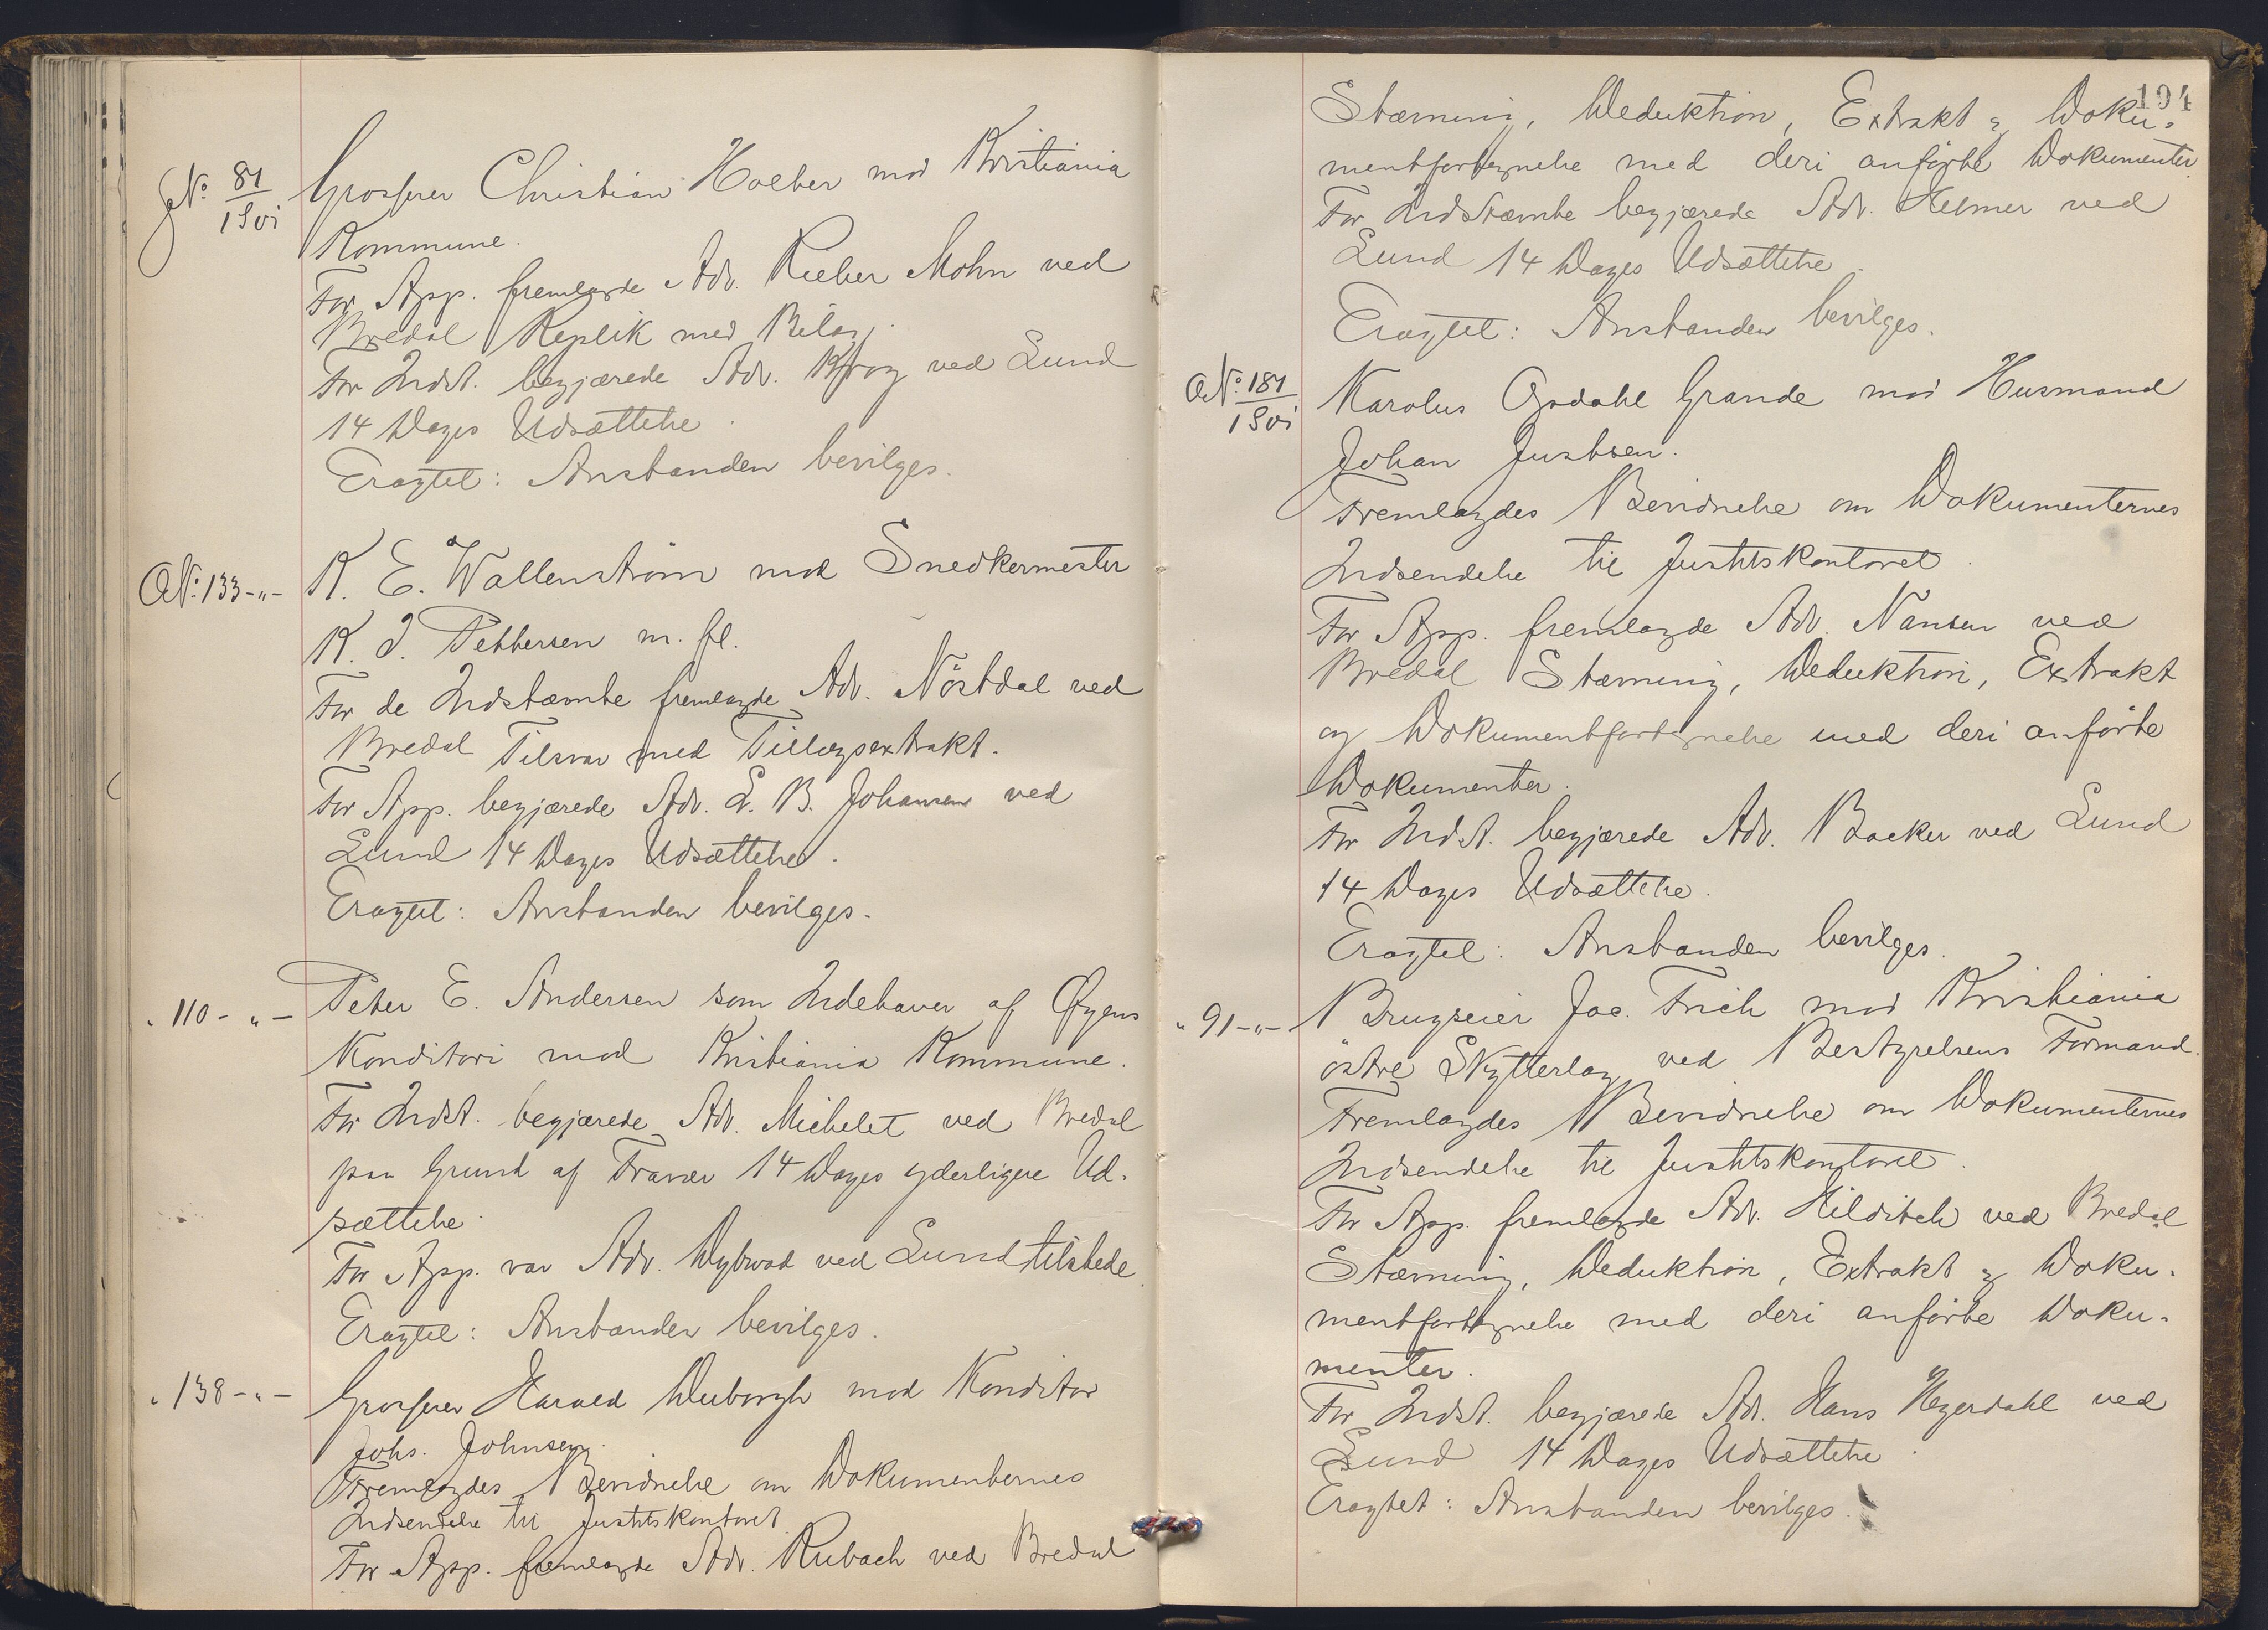 No 81/1901 Grosserer Christian Holter mod Kristiania
Kommune.
For App. fremlagde Adv. Rieber Mohn ved
Bredal Replik med Bilag.
For Indst. begjærede Adv. Krog ved Lund
14 Dages Udsættelse.
Eragtet: Anstanden bevilges.
A No: 133-"- K. E. Wallenström mod Snedkermester
K. J. Pettersen m. fl.
For de Indstævnte fremlagde Adv. Nöstdal ved
Bredal Tilsvar med Tillægsextrakt.
For App. begjærede Adv. L. B. Johansen ved
Lund 14 Dages Udsættelse.
Eragtet: Anstanden bevilges.
" 110-"- Peter E. Andersen som Indehaver af Øyens
Konditori mod Kristiania Kommune.
For Indst. begjærede Adv. Michelet ved Bredal
paa Grund af Fravær 14 Dages yderligere Ud-
sættelse.
For App. var Adv. Dybwad ved Lund tilstede.
Eragtet: Anstanden bevilges.
" 138-"- Grosserer Harald Duborgh mod Konditor
Johs. Johnsen.
Fremlagdes Bevidnelse om Dokumenternes
Indsendelse til Justitskontoret.
For App. fremlagde Adv. Rubach ved Bredal
194
Stævning, Deduktion, Extrakt & Doku-
mentfortegnelse med deri anførte Dokumenter.
For Indstævnte begjærede Adv. Helmer ved
Lund 14 Dages Udsættelse.
Eragtet: Anstanden bevilges.
A No: 181/1901 Karolus Opdahl Grande mod Husmand
Johan Justsen.
Fremlagdes Bevidnelse om Dokumenternes
Indsendelse til Justitskontoret.
For App. fremlagde Adv. Nansen ved
Bredal Stævning, Deduktion, Extrakt
og Dokumentfortegnelse med deri anførte
Dokumenter.
For Indst. begjærede Adv. Backer ved Lund
14 Dages Udsættelse.
Eragtet: Anstanden bevilges.
" 91-"- Brugseier Jac. Frich mod Kristiania
östre Skytterlag ved Bestyrelsens Formand.
Fremlagdes Bevidnelse om Dokumenternes
Indsendelse til Justitskontoret.
For App. fremlagde Adv. Hilditch ved Bredal
Stævning, Deduktion, Extrakt & Doku-
mentfortegnelse med deri anførte Doku-
menter.
For Indst. begjærede Adv. Hans Heyerdahl ved
Lund 14 Dages Udsættelse.
Eragtet: Anstanden bevilges.